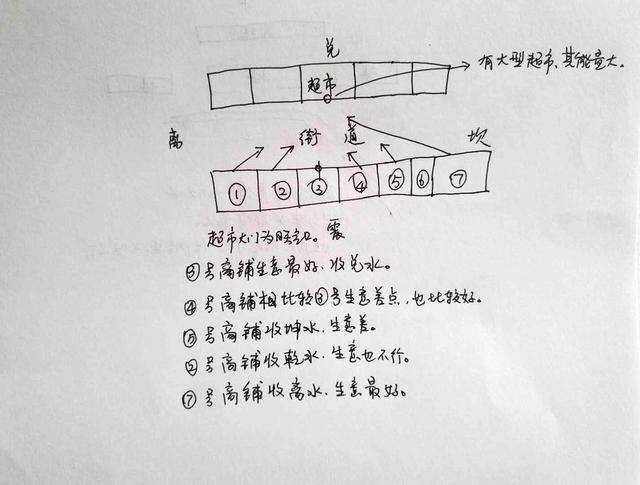 兑
超市
有大型超市、其能量大。
离
街道
坎
① ② ③ ④ ⑤ ⑥ ⑦
超市大门为旺气口。震
③号商铺生意最好、收兑水。
④号商铺相比较③号生意差点,也比较好。
⑤号商铺收坤水、生意差。
②号商铺收乾水、生意也不行。
⑦号商铺收离水、生意最好。